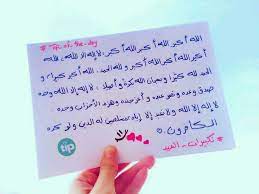 # Tip-of-the-day
الله أكبر الله أكبر الله أكبر، لا إله إلا الله، الله
أكبر الله أكبر الله أكبر و لله الحمد، الله أكبر كبيرا و
الحمد لله كثيرا و سبحان الله بكرة و أصيلا، لا إله إلا الله وحده
صدق وعده و نصر عبده و أعز جنده وهزم الأحزاب وحده،
لا إله إلا الله ولا نعبد إلا إياه مخلصين له الدين ولو كره
الكافرون.
# تكبيرات - العيد
tip